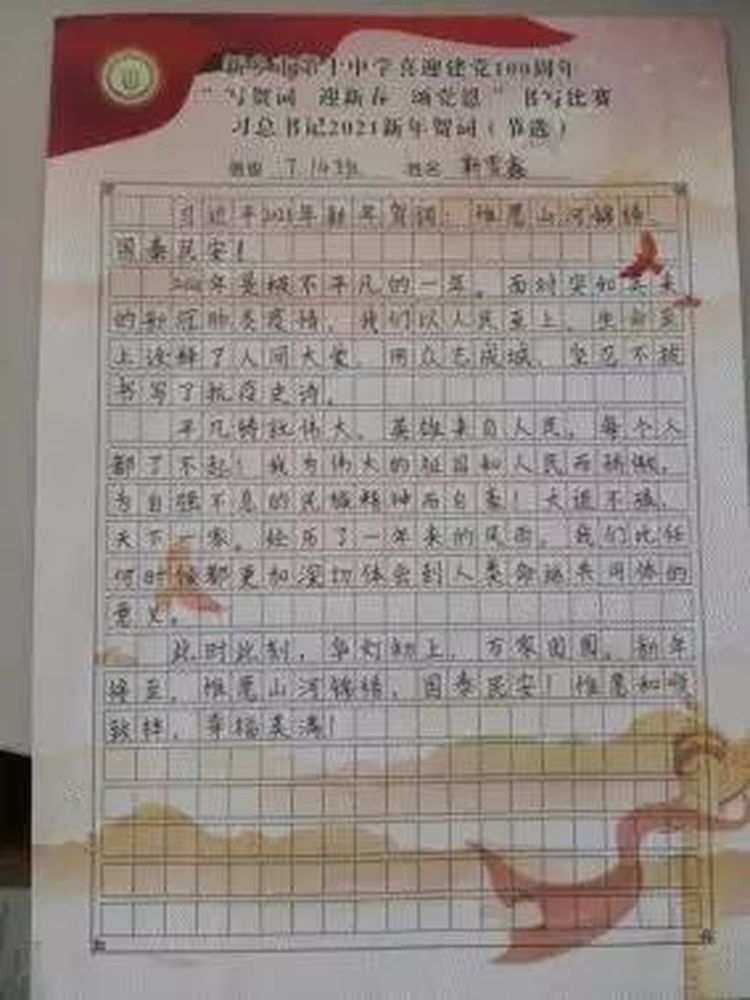 第十中学喜迎建党100周年
“写贺词 迎新春 颂党恩”书写比赛
习总书记2021新年贺词(节选)
班级 7.14班 姓名
习近平2021年新年贺词:惟愿山河锦绣、
国泰民安!
2020年是极不平凡的一年。面对突如其来
的新冠肺炎疫情,我们以人民至上、生命至
上诠释了人间大爱,用众志成城、坚忍不拔
书写了抗疫史诗。
平凡铸就伟大,英雄来自人民。每个人
都了不起!我为伟大的祖国和人民而骄傲,
为自强不息的民族精神而自豪!大道不孤,
天下一家。经历了一年来的风雨,我们比任
何时候都更加深切体会到人类命运共同体的
意义。
此时此刻,华灯初上,万家团圆。新年
将至,惟愿山河锦绣、国泰民安!惟愿和顺
致祥、幸福美满!